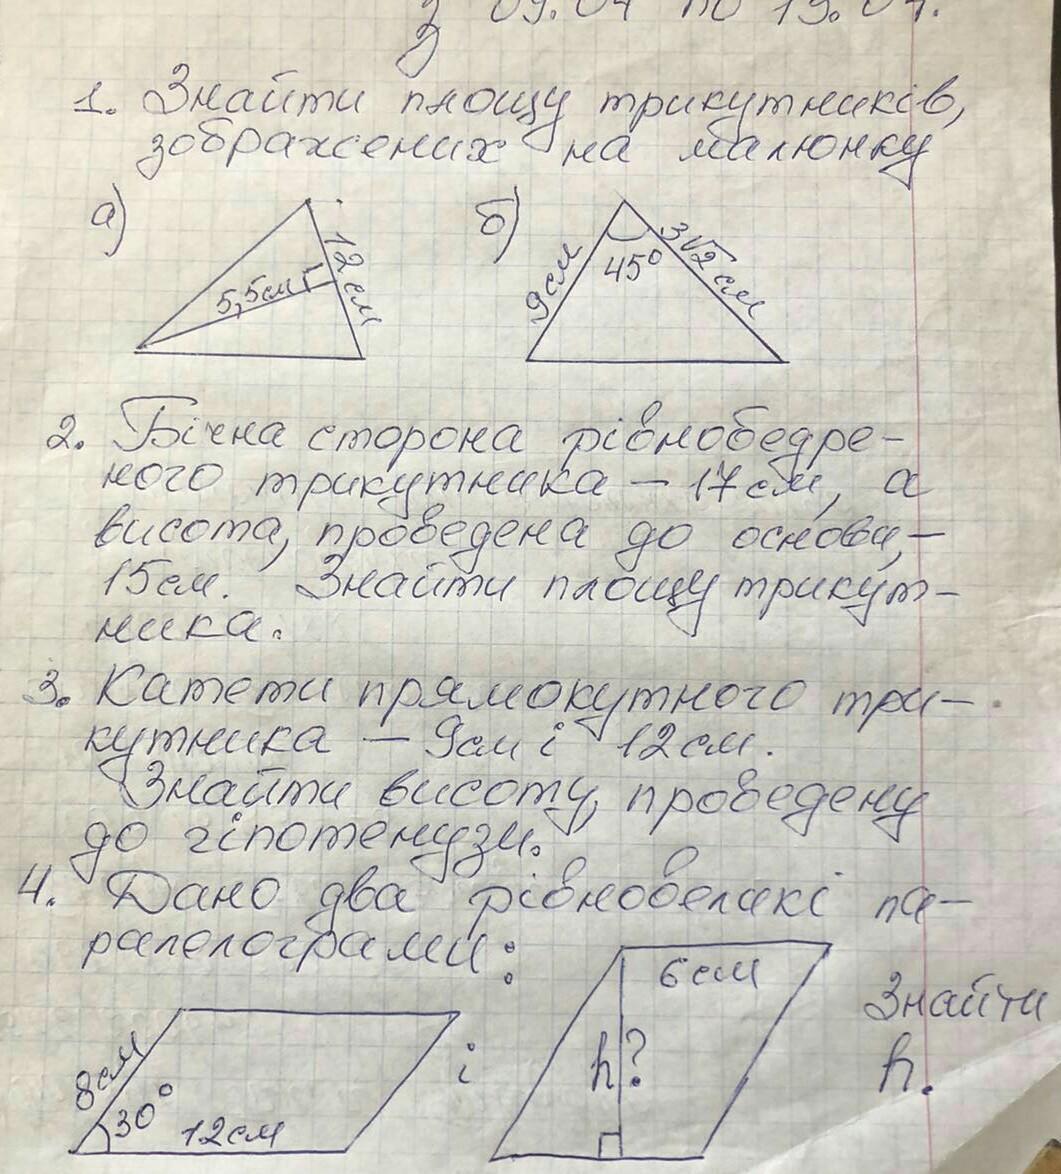 з 09.04 по 19.04.
1. Знайти площу трикутників,
зображених на малюнку
а)
12 см
5,5 см
б)
9 см
45°
3√2 см
2. Бічна сторона рівнобедре-
ного трикутника – 17 см, а
висота, проведена до основи, –
15 см. Знайти площу трикут-
ника.
3. Катети прямокутного три-
кутника – 9 см і 12 см.
Знайти висоту, проведену
до гіпотенузи.
4. Дано два рівновеликі па-
ралелограми:
8 см
30°
12 см
і
6 см
h?
Знайти
h.